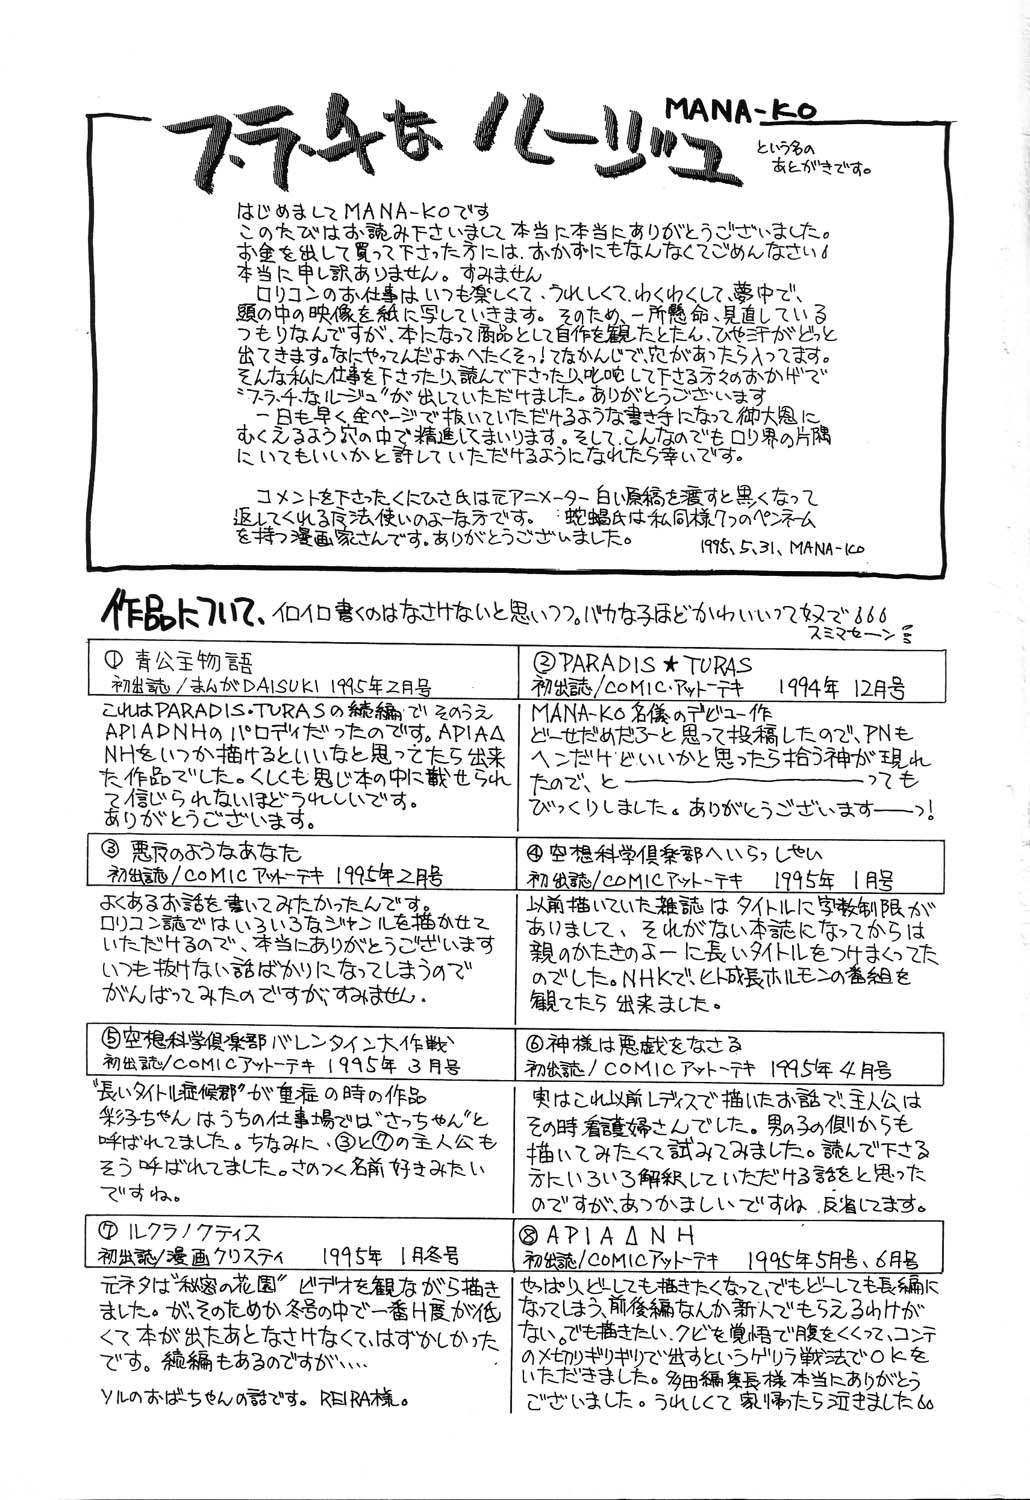 フ・ラ・チな ルージュ
MANA-KO
という名の
あとがきです。
はじめましてMANA-KOです
このたびはお読み下さいまして本当に本当にありがとうございました。
お金を出して買って下さった方には、おかずにもなんなくてごめんなさい
本当に申し訳ありません。すみません
ロリコンのお仕事はいつも楽しくて、うれしくて、わくわくして、夢中で、
頭の中の映像を紙に写していきます。そのため、一所懸命、見直している
つもりなんですが、本になって商品として自作を観たとたん、ひや汗がどっと
出てきます。なにやってんだよぉへたくそっ!てなかんじで、穴があったら入ってます。
そんな私に仕事を下さったり、読んで下さったり、叱咤して下さる方々のおかげで
"フ・ラ・チ・なルージュ"が出していただけました。ありがとうございます
一日も早く全ページで抜いていただけるような書き手になって御大恩に
むくえるよう穴の中で精進してまいります。そして、こんなのでもロリ界の片隅
にいてもいいかと許していただけるようになれたら幸いです。
コメントを下さったくにひさ氏は元アニメーター白い原稿を渡すと黒くなって
返してくれる魔法使いのよーな方です。蛇蝎氏は私同様7つのペンネーム
を持つ漫画家さんです。ありがとうございました。
1995、5、31、MANA-KO
作品について、イロイロ書くのはなさけないと思いつつ。バカな子ほどかわいいって奴で
スミマセーン
① 青公主物語
初出誌/まんがDAISUKI 1995年2月号
これはPARADIS・TURASの続編でそのうえ
APIAΔNHのパロディだったのです。APIAΔ
NHをいつか描けるといいなと思ってたら出来
た作品でした。くしくも同じ本の中に載せられ
て信じられないほどうれしいです。
ありがとうございます。
② PARADIS★TURAS
初出誌/COMIC・アットーテキ 1994年 12月号
MANA-KO名儀のデビュー作
どーせだめだろーと思って投稿したので、PNも
ヘンだけどいいかと思ったら拾う神が現れ
たので、と――――――――っても
びっくりしました。ありがとうございます――っ!
③ 悪夜のようなあなた
初出誌/COMICアットーテキ 1995年2月号
よくあるお話を書いてみたかったんです。
ロリコン誌ではいろいろなジャンルを描かせて
いただけるので、本当にありがとうございます
いつも抜けない話ばかりになってしまうので
がんばってみたのですが、すみません.
④ 空想科学倶楽部へいらっしゃい
初出誌/COMICアットーテキ 1995年 1月号
以前描いていた雑誌はタイトルに字数制限が
ありまして、それがない本誌になってからは
親のかたきのよーに長いタイトルをつけまくってた
のでした。NHKで、ヒト成長ホルモンの番組を
観てたら出来ました。
⑤ 空想科学倶楽部バレンタイン大作戦
初出誌/COMICアットーテキ 1995年 3月号
"長いタイトル症候郡"が重症の時の作品
彩子ちゃんはうちの仕事場では"さっちゃん"と
呼ばれてました。ちなみに、③と⑦の主人公も
そう呼ばれてました。さのつく名前好きみたい
ですね。
⑥ 神様は悪戯をなさる
初出誌/COMICアットーテキ 1995年4月号
実はこれ以前レディスで描いたお話で、主人公は
その時看護婦さんでした。男の子の側からも
描いてみたくて試みてみました。読んで下さる
方にいろいろ解釈していただける話をと思った
のですが、あつかましいですね 反省してます。
⑦ ルクラノクティス
初出誌/漫画クリスティ 1995年 1月冬号
元ネタは"秘密の花園"ビデオを観ながら描き
ました。が、そのためか冬号の中で一番H度が低
くて本が出たあとなさけなくて、はずかしかった
です。続編もあるのですが・・・・
ソルのおばーちゃんの話です。REIRA様。
⑧ APIAΔNH
初出誌/COMICアットーテキ 1995年5月号、6月号
やっぱり、どーしても描きたくなって、でもどーしても長編に
なってしまう、前後編なんか新人でもらえるわけが
ない。でも描きたい、クビを覚悟で腹をくくって、コンテ
の〆切りギリギリで出すというゲリラ戦法でOKを
いただきました。多田編集長様本当にありがとう
ございました。うれしくて家帰ったら泣きました